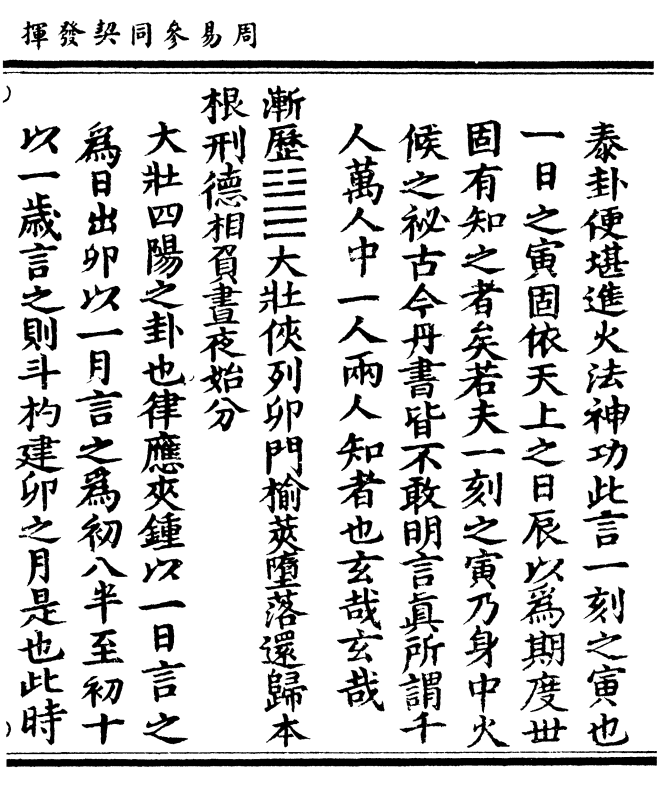 周易參同契發揮
泰卦便堪進火法神功此言一刻之寅也
一日之寅固依天上之日辰以爲期度世
固有知之者矣若夫一刻之寅乃身中火
候之祕古今丹書皆不敢明言眞所謂千
人萬人中一人兩人知者也玄哉玄哉
漸歷䷡大壯俠列卯門榆莢墮落還歸本
根刑德相負晝夜始分
大壯四陽之卦也律應夾鍾以一日言之
爲日出卯以一月言之爲初八半至初十
以一歲言之則斗杓建卯之月是也此時